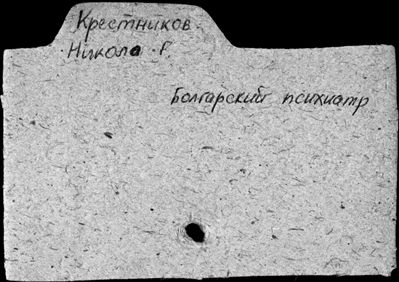 Крестников
Никола Г.
Болгарский психиатр